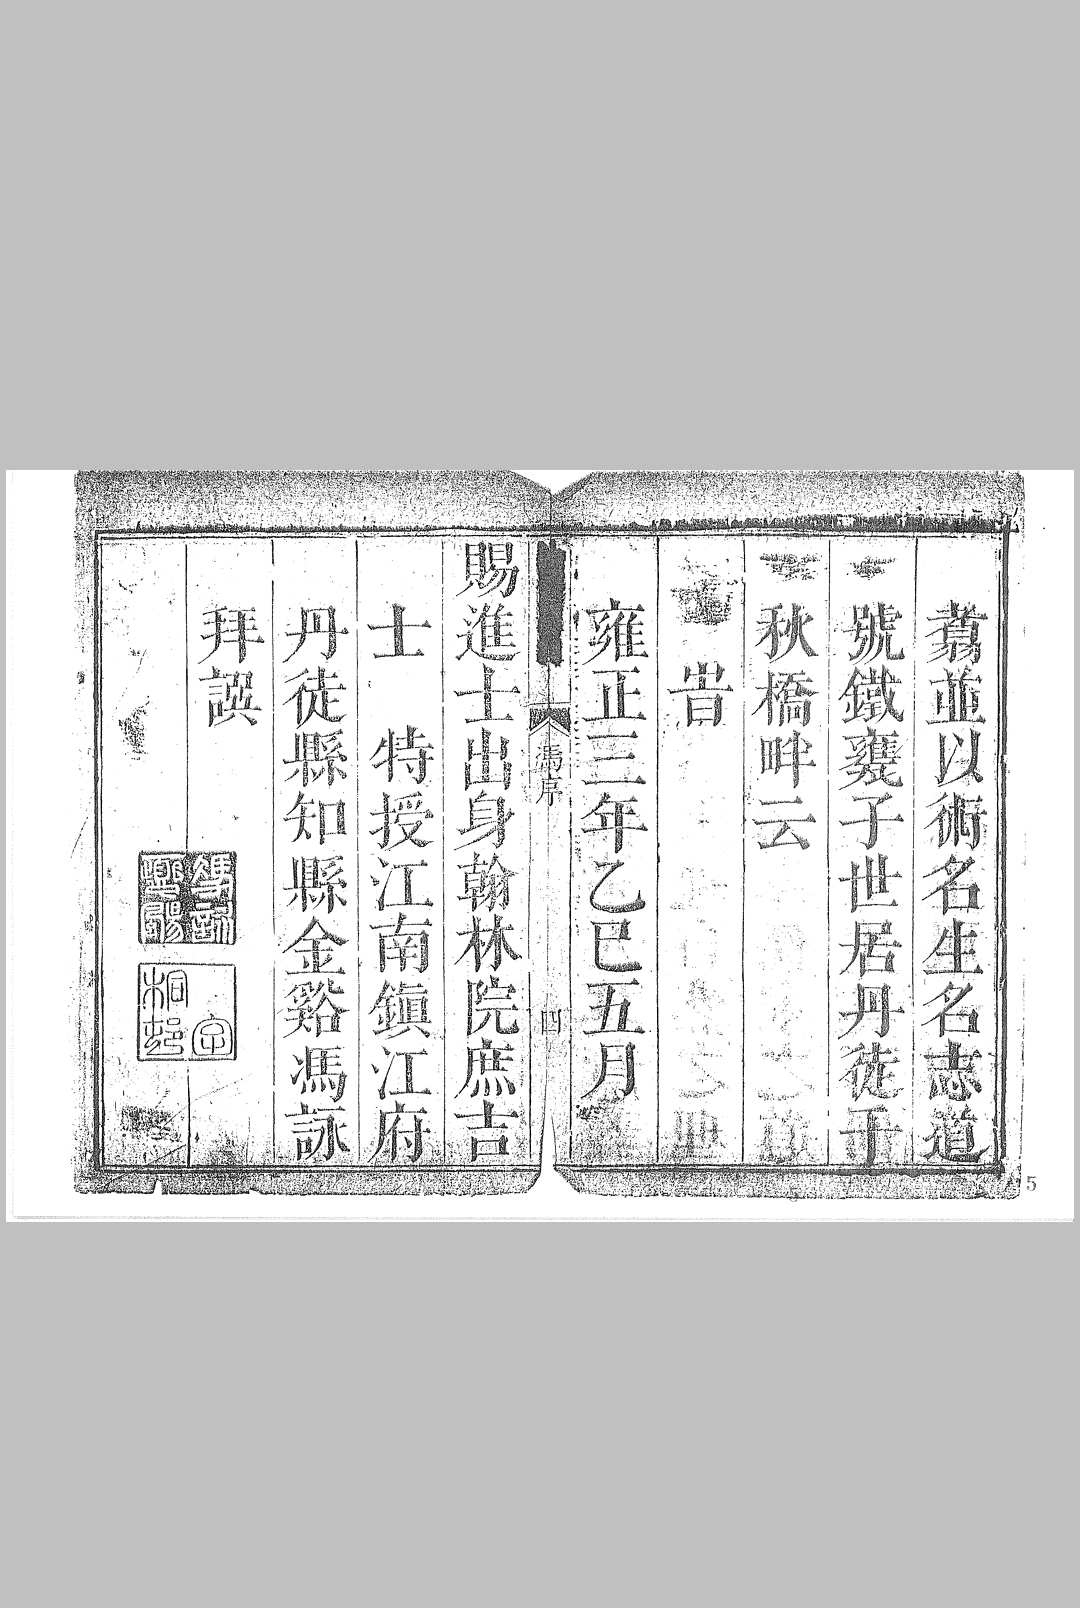 翥並以術名生名志道
號鐵襲子世居丹徒千
秋橋畔云
峕
雍正三年乙巳五月
馮序
四
賜進士出身翰林院庶吉
士 特授江南鎮江府
丹徒縣知縣金谿馮詠
拜譔
字
桐邨
5